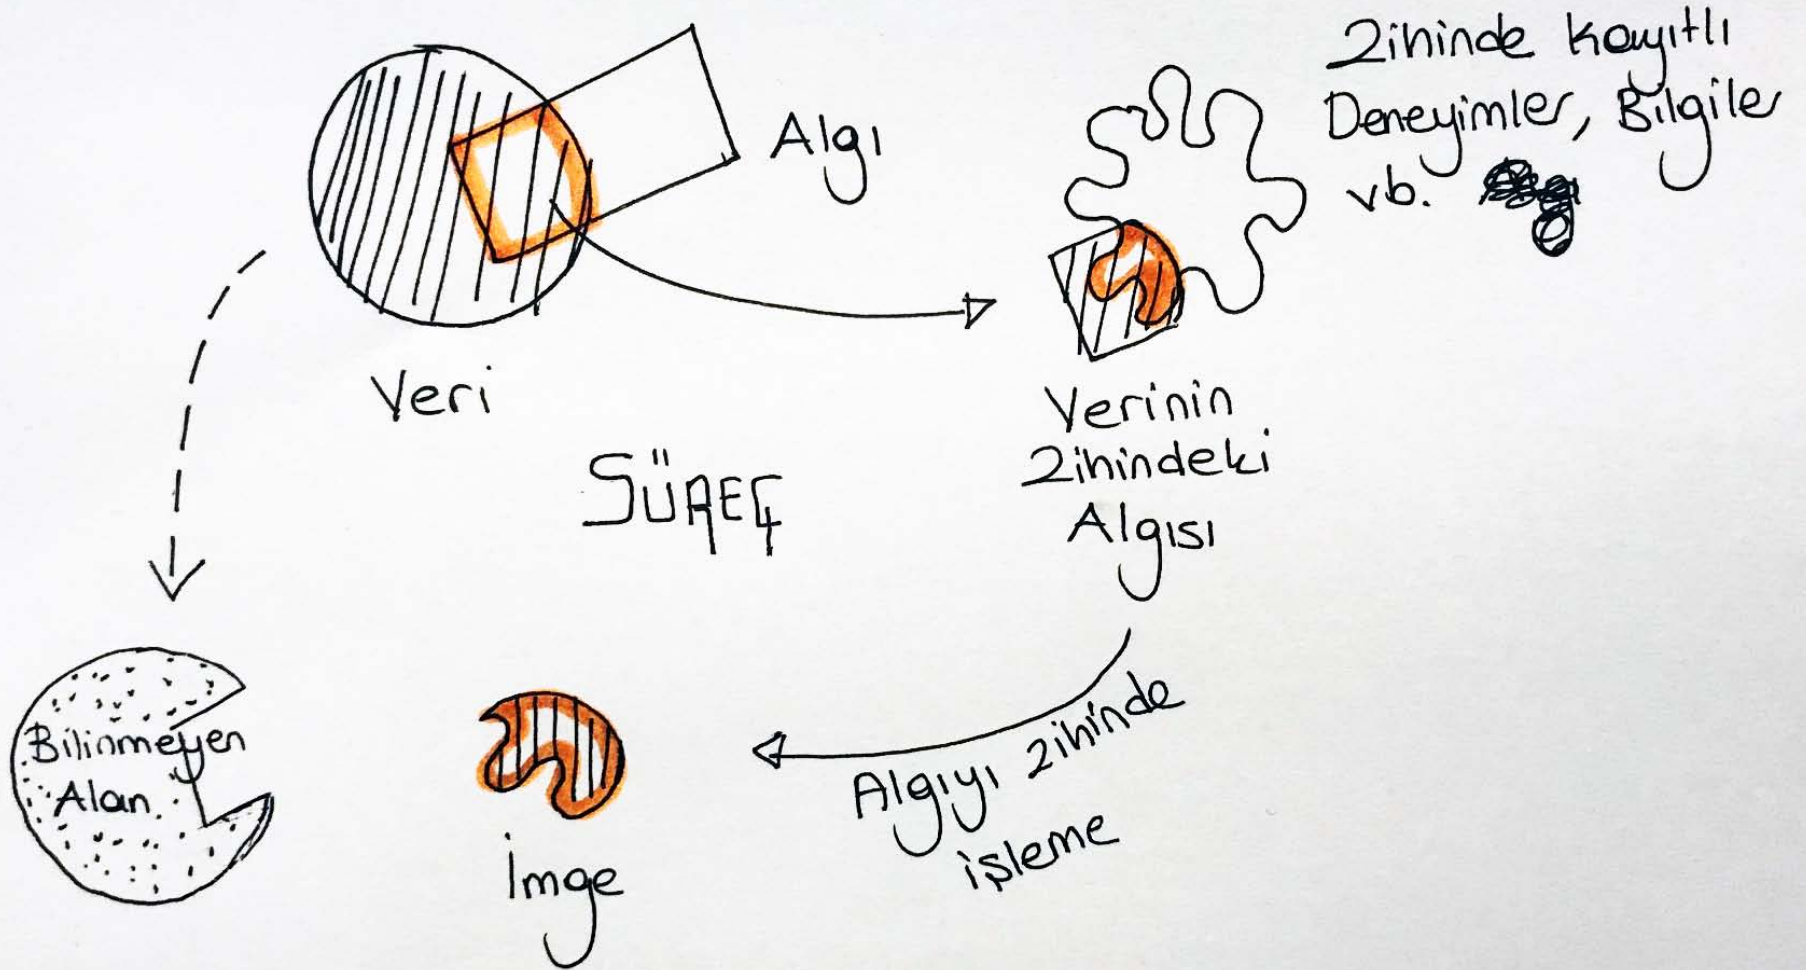 Algı
Zihinde Kayıtlı
Deneyimler, Bilgiler
vb.
Veri
Verinin
Zihindeki
Algısı
SÜREÇ
Bilinmeyen
Alan
İmge
Algıyı zihinde
işleme